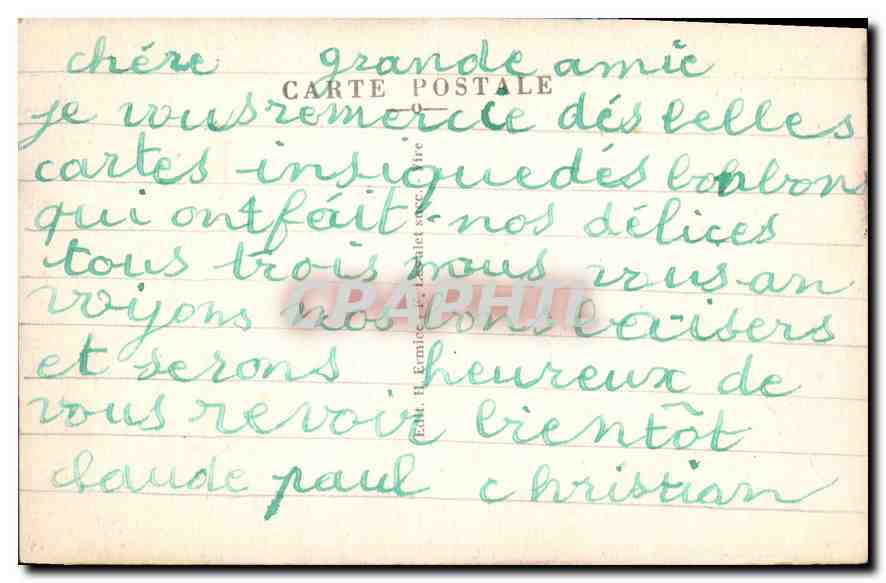 chére grande amie
CARTE POSTALE
je vous remercie dés belles
cartes insique dés bonbons
qui ont fáit nos délices
tous trois nous vous an
voyons nos bons baisers
et serons heureux de
vous revoir bientôt
claude paul christian
Edit. H. Ermice succ. Vire
CPAPHIL